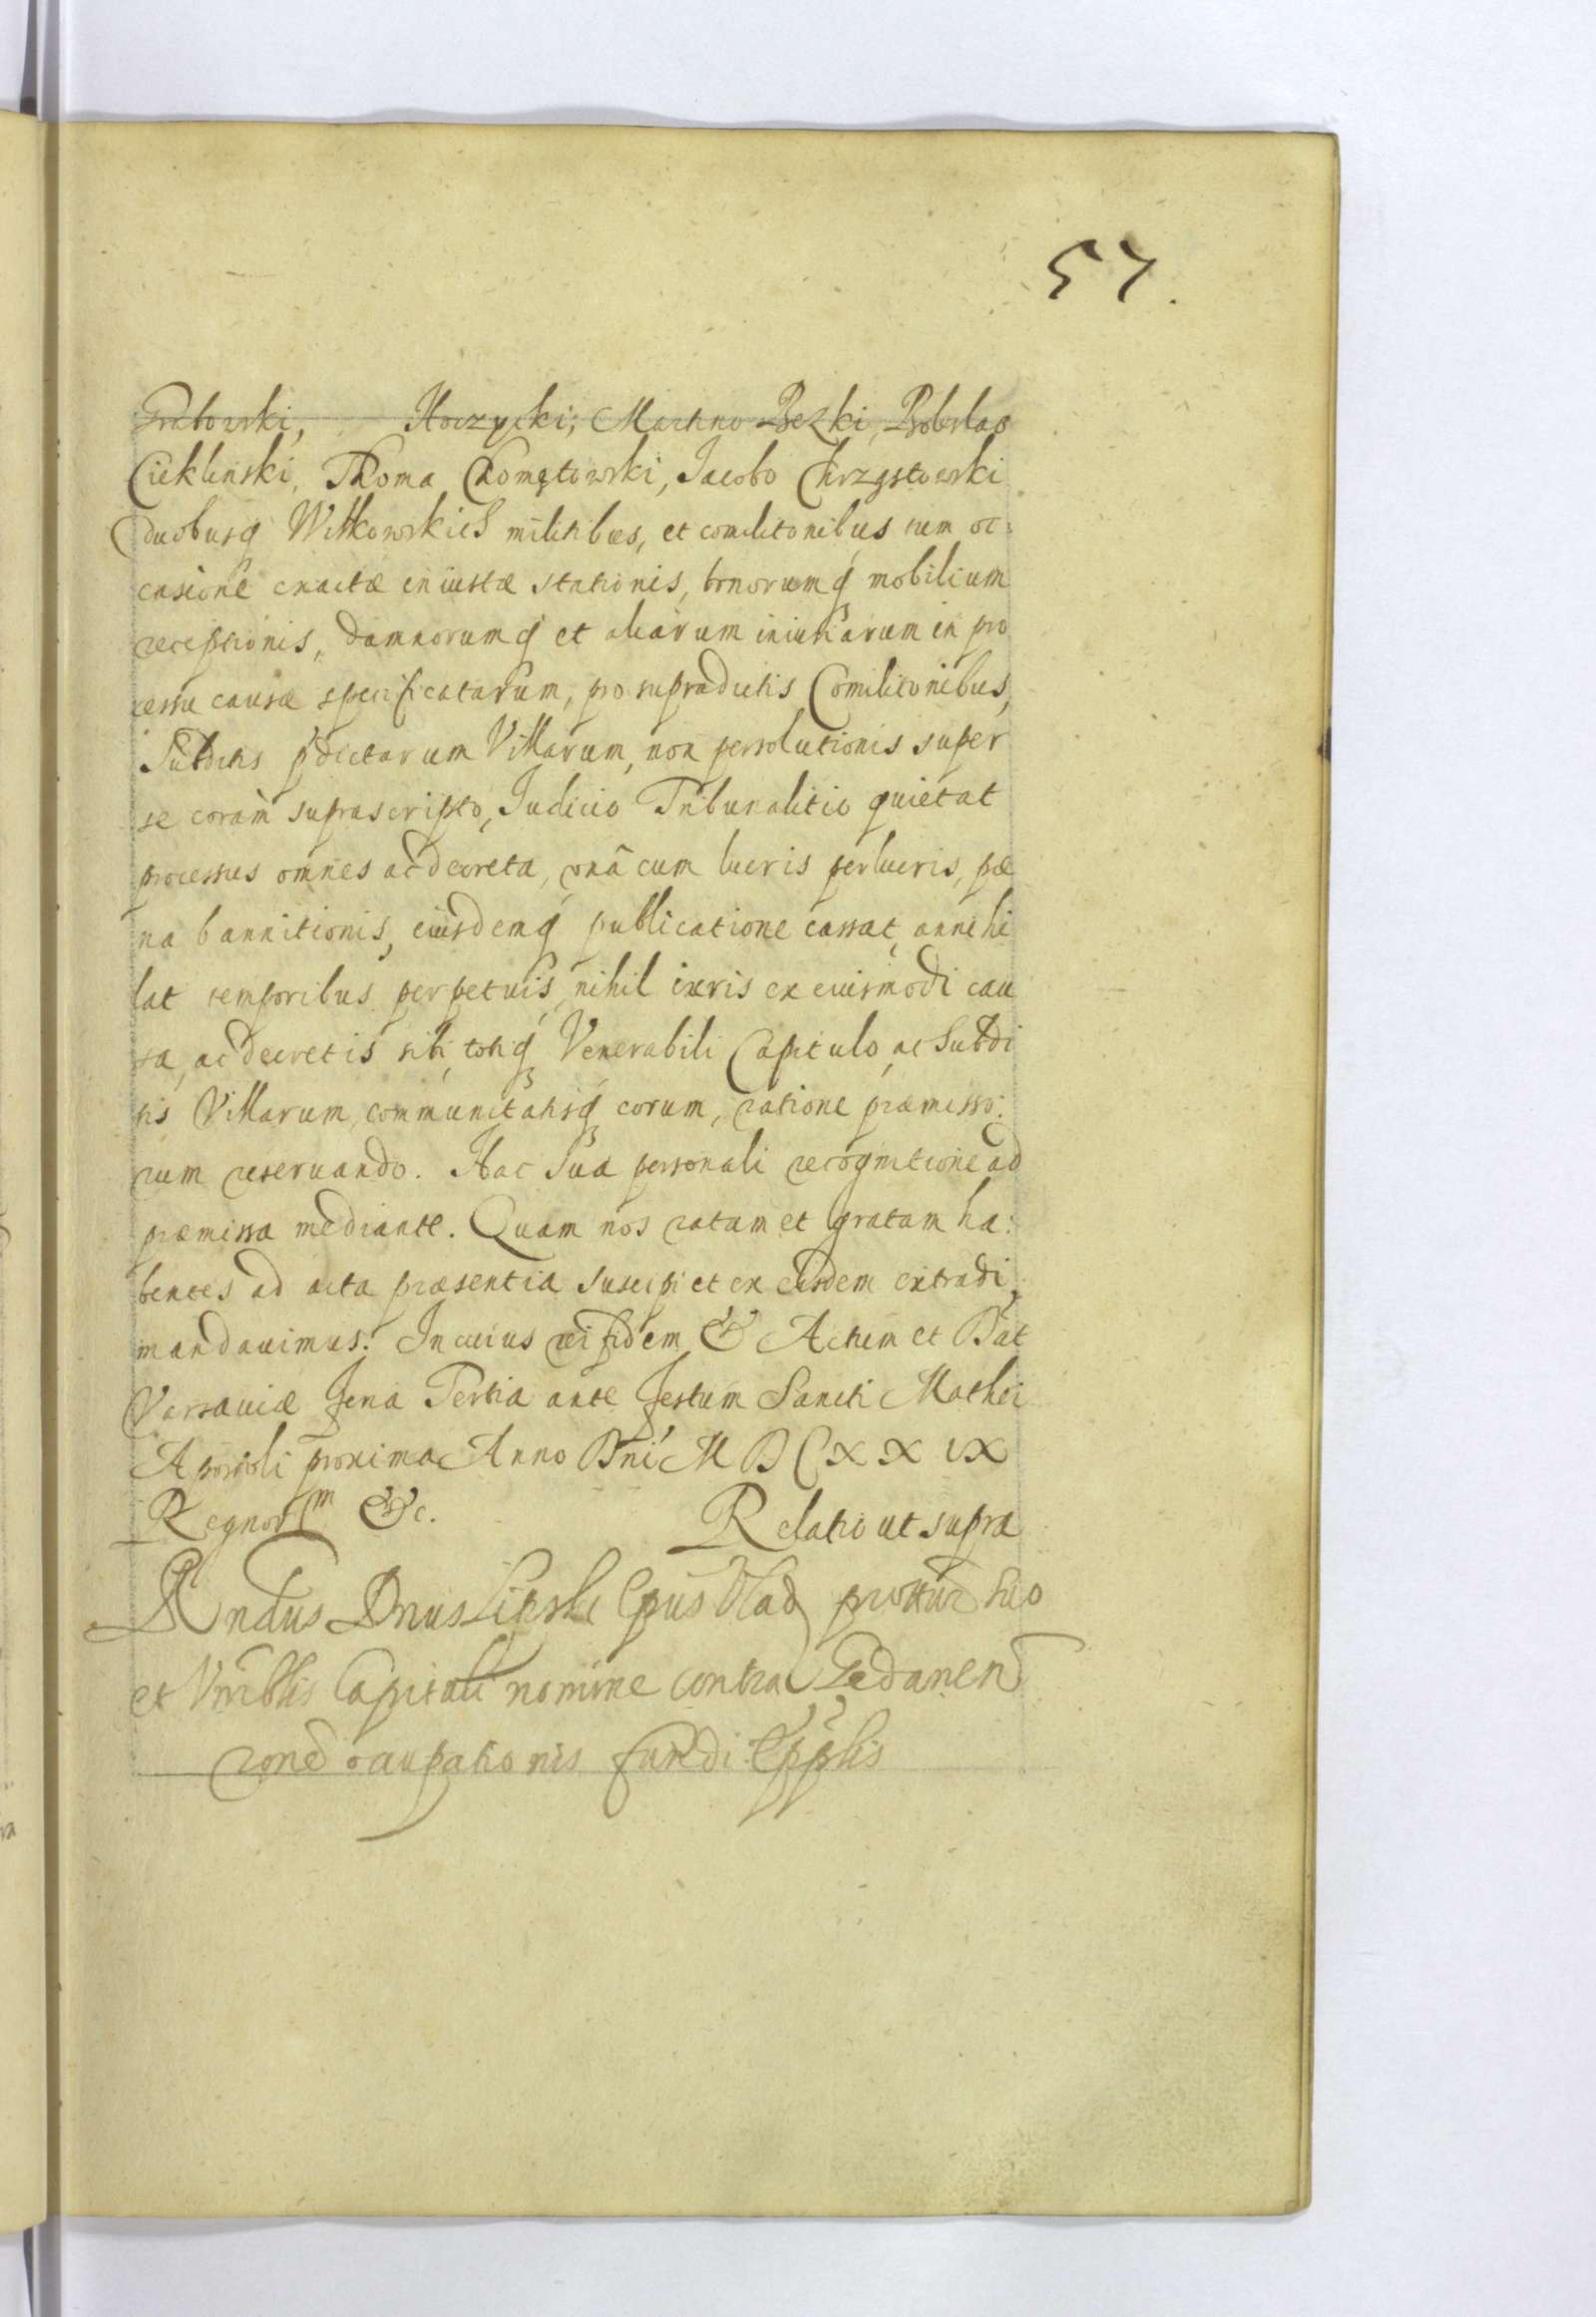 57.
Grabowski, Hoczycki; Martino Bezki, Boleslao
Cieklinski, Thoma Chomętowski, Jacobo Chrząstowski
duobusq Witkowskich militibus, et comilitonibus tum oc
casione exactæ iniustæ stationis, bonorumq mobilium
receptionis, damnorumq et aliarum iniuriarum in pro
cessu causæ specificatarum, pro supradictis Comilitonibus,
Subditis pdictarum Villarum, non persolutionis super
se coram suprascripto, Iudicio Tribunalitio quietat
processus omnes ac decreta, vnâ cum lucris perlucris, pæ
na bannitionis, eiusdemq publicatione cassat, annihi
lat temporibus perpetuis, nihil iuris ex eiusmodi cau
sa, ac decretis sibi, totiq Venerabili Capitulo, ac Subdi
tis Villarum, communitatisq eorum, ratione præmisso:
rum reseruando. Hac Sua personali recognitione ad
præmissa mediante. Quam nos ratam et gratam ha:
bentes ad acta præsentia suscipi et ex eisdem extradi,
mandauimus. In cuius rei fidem & Actum et Dat
Varsauiæ Feria Tertia ante Festum Sancti Mathei
Apostoli proxima Anno Dni M D C X X IX
Regnor m &c. Relatio ut supra
Rndus Dnus Lipski Epus Vlad suo
et Vnrblis Capituli nomine contra Gedanen
rone occupationis fundi Epplis